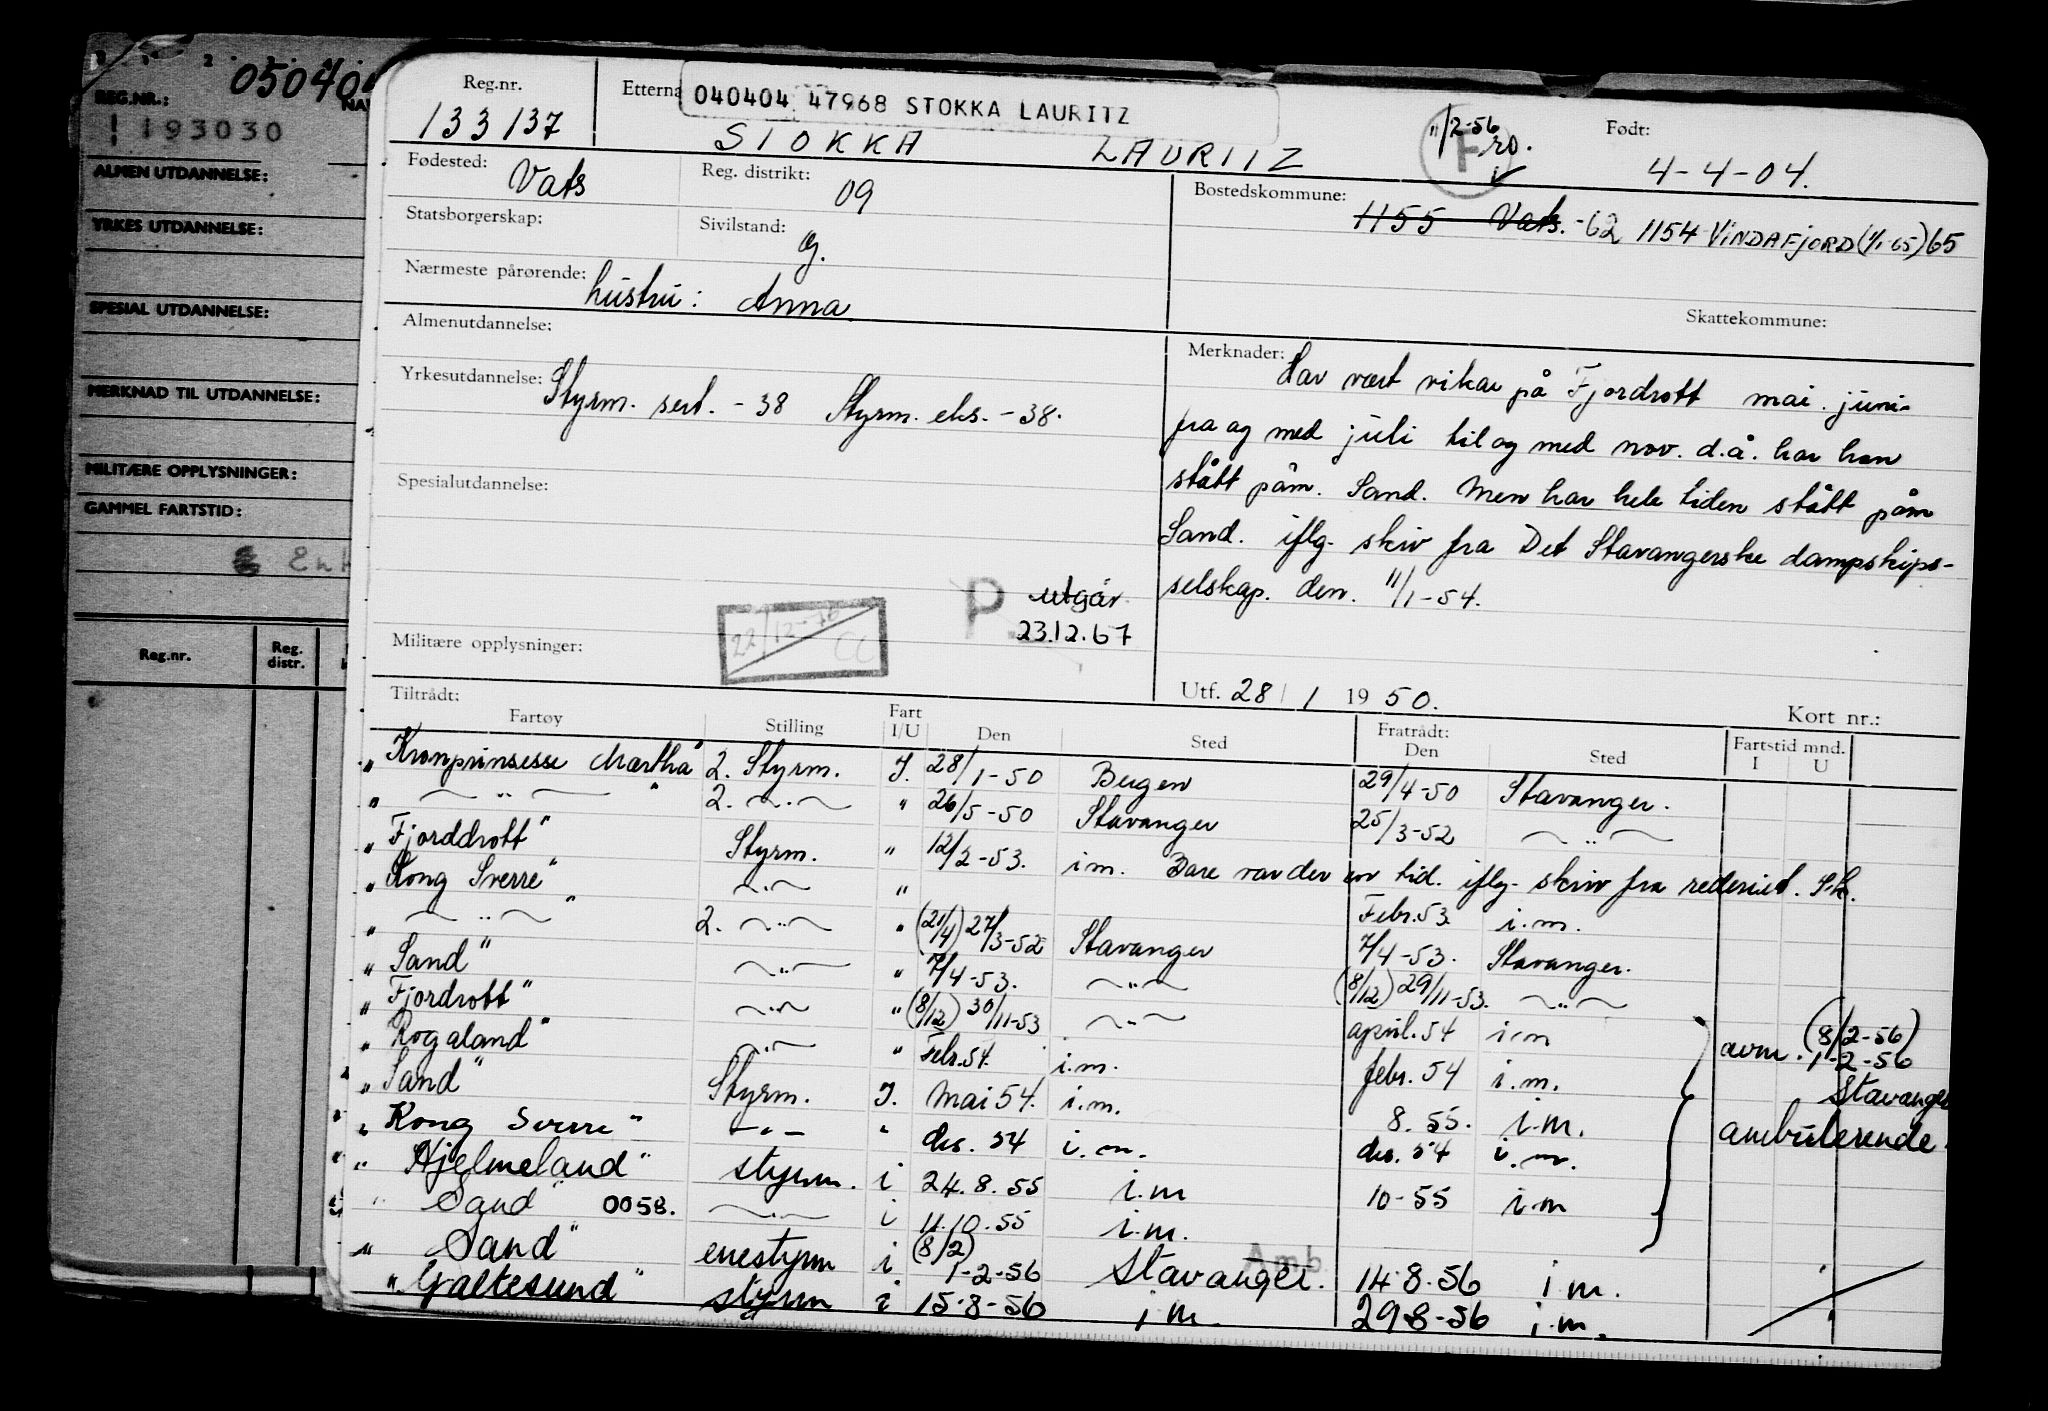 050404
REG.NR.:
193030
ALMEN UTDANNELSE:
YRKES UTDANNELSE:
SPESIAL UTDANNELSE:
MERKNAD TIL UTDANNELSE:
MILITÆRE OPPLYSNINGER:
GAMMEL FARTSTID:
Reg.nr. Reg. distr.
Reg.nr. Etterna 040404 47968 STOKKA LAURITZ
133137 STOKKA LAURITZ 11/2-56 F ro. Født: 4-4-04.
Fødested: Vats Reg. distrikt: 09 Bostedskommune: 1155 Vats. -62 1154 VINDAFJORD (1/1-65) 65
Statsborgerskap: Sivilstand: g.
Nærmeste pårørende: hustru: Anna
Skattekommune:
Almenutdannelse:
Yrkesutdannelse: Styrm. sert. - 38 Styrm. eks. - 38.
Spesialutdannelse:
Merknader: Har vært vikar på Fjordrott mai. juni-
fra og med juli til og med nov. d.å. har han
stått påm. Sand. Men har hele tiden stått påm
Sand. iflg. skriv fra Det Stavangerske dampskips-
selskap. den. 11/1-54.
P utgår
23.12.67
Militære opplysninger: 22/12-76 CC
Utf. 28/1 1950. Kort nr.:
Tiltrådt:
Fartøy Stilling Fart I/U Den Sted Fratrådt: Den Sted Fartstid mnd. I U
"Kronprinsesse Märtha" 2. Styrm. I. 28/1-50 Bergen 29/4-50 Stavanger.
" — " — " 2. — " — " 26/5-50 Stavanger 25/3-52 — " —
"Fjorddrott" Styrm. " 12/2-53. i.m. Bare var der en tid. iflg. skriv fra rederiet. S.k.
"Kong Sverre" — " — "
" — " — " 2. — " — " (21/4) 27/3-52 Stavanger Febr. 53 i.m.
"Sand" — " — " 7/4-53. — " — 7/4-53. Stavanger.
"Fjordrott" — " — " (8/12) 30/11-53 — " — (8/12) 29/11-53. — " —
"Rogaland" — " — " Febr. 54. i.m. april. 54 i.m
"Sand" Styrm. I. Mai 54. i.m. febr. 54 i.m.
avm. (8/2-56) 1-2-56 Stavanger
"Kong Sverre" — " — " des. 54 i.m. 8. 55. i.m. ambulerende.
"Hjelmeland" styrm. i 24.8.55 i.m des. 54 i.m.
"Sand" 0058. — " — i 11.10.55 i.m. 10-55 i.m
"Sand" enestyrm i (8/2) 1-2-56 Stavanger. Amb. 14-8-56 i m.
"Galtesund" styrm i 15-8-56 i m. 29-8-56 i.m.